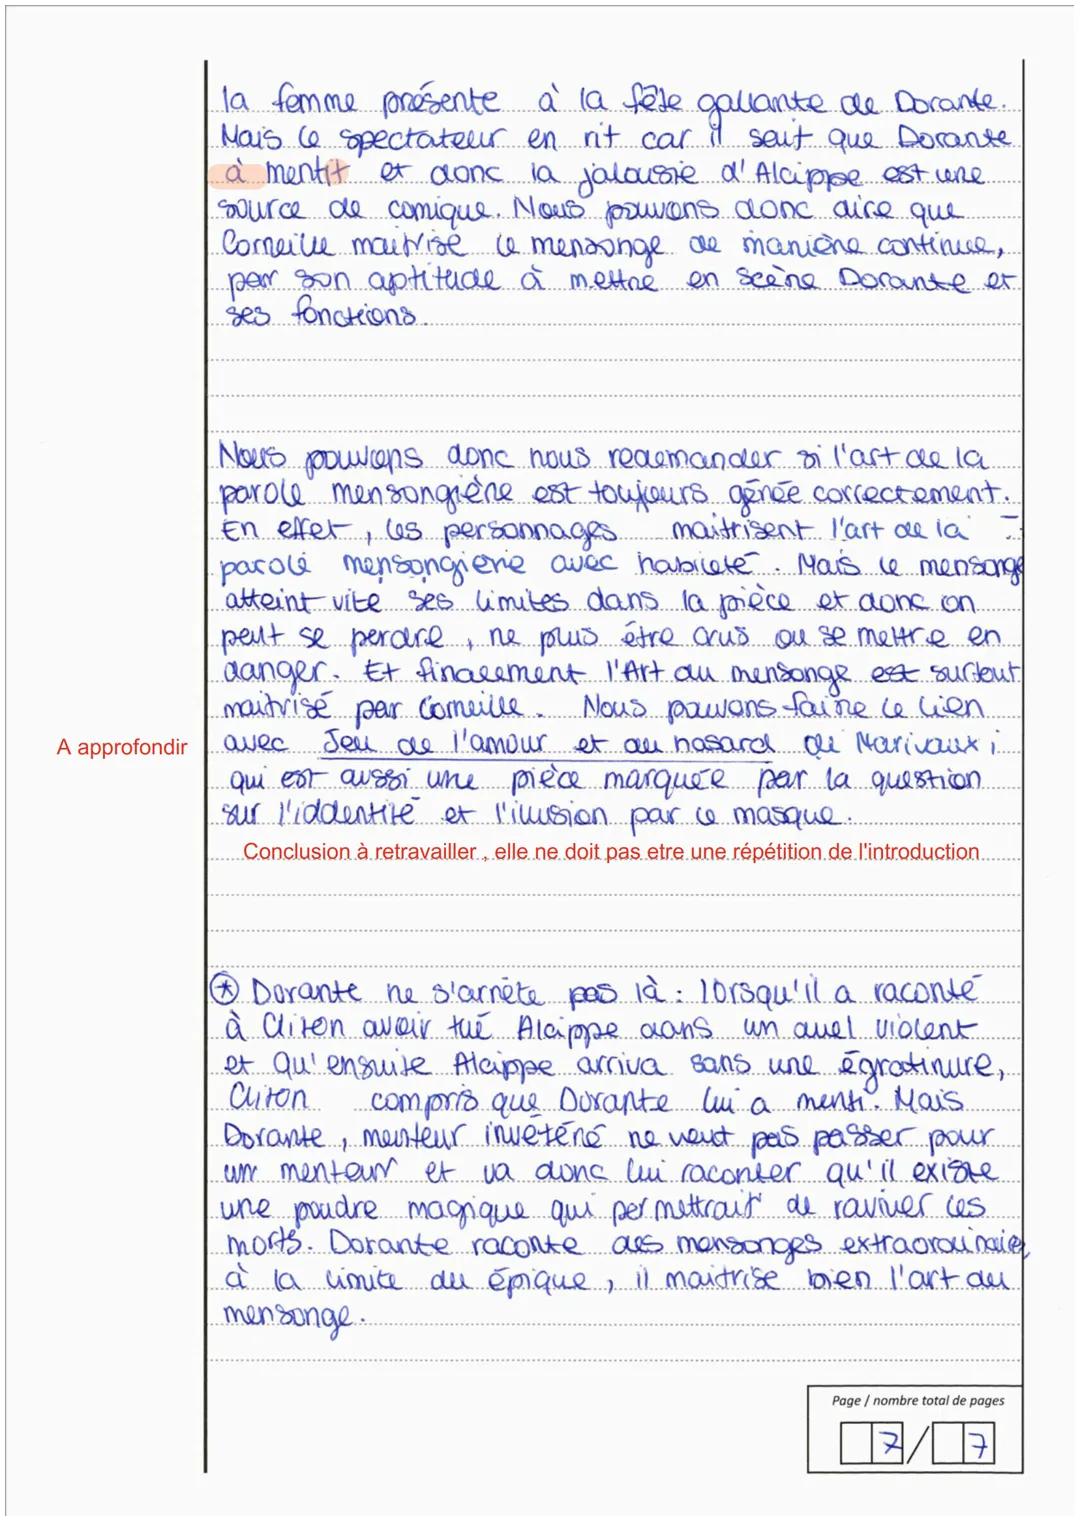 la femme présente à la fête gallante de Dorante.
Mais le spectateur en rit car il sait que Dorante
à mentit et donc la jalousie d'Alcippe est une
source de comique. Nous pouvons donc dire que
Corneille maitrise le mensonge de manière continue,
par son aptitude à mettre en scène Dorante et
ses fonctions.
Nous pouvons donc nous redemander si l'art de la
parole mensongière est toujours gérée correctement.
En effet, les personnages maitrisent l'art de la
parole mensongière avec habileté. Mais le mensonge
atteint vite ses limites dans la pièce et donc on
peut se perdre, ne plus être crus ou se mettre en
danger. Et finalement l'Art du mensonge est surtout
maitrisé par Corneille. Nous pouvons faire le lien
A approfondir
avec Jeu de l'amour et du hasard de Marivaux ;
qui est aussi une pièce marquée par la question
sur l'iddentité et l'illusion par le masque.
Conclusion à retravailler , elle ne doit pas etre une répétition de l'introduction
* Dorante ne s'arrête pas là : lorsqu'il a raconté
à Cliton avoir tué Alcippe dans un duel violent
et qu'ensuite Alcippe arriva sans une égratinure,
Cliton compris que Dorante lui a menti. Mais
Dorante, menteur invétéré ne veut pas passer pour
un menteur et va donc lui raconter qu'il existe
une poudre magique qui permettrait de raviver les
morts. Dorante raconte des mensonges extraordinaires
à la limite du épique, il maitrise bien l'art du
mensonge.
Page / nombre total de pages
7 / 7